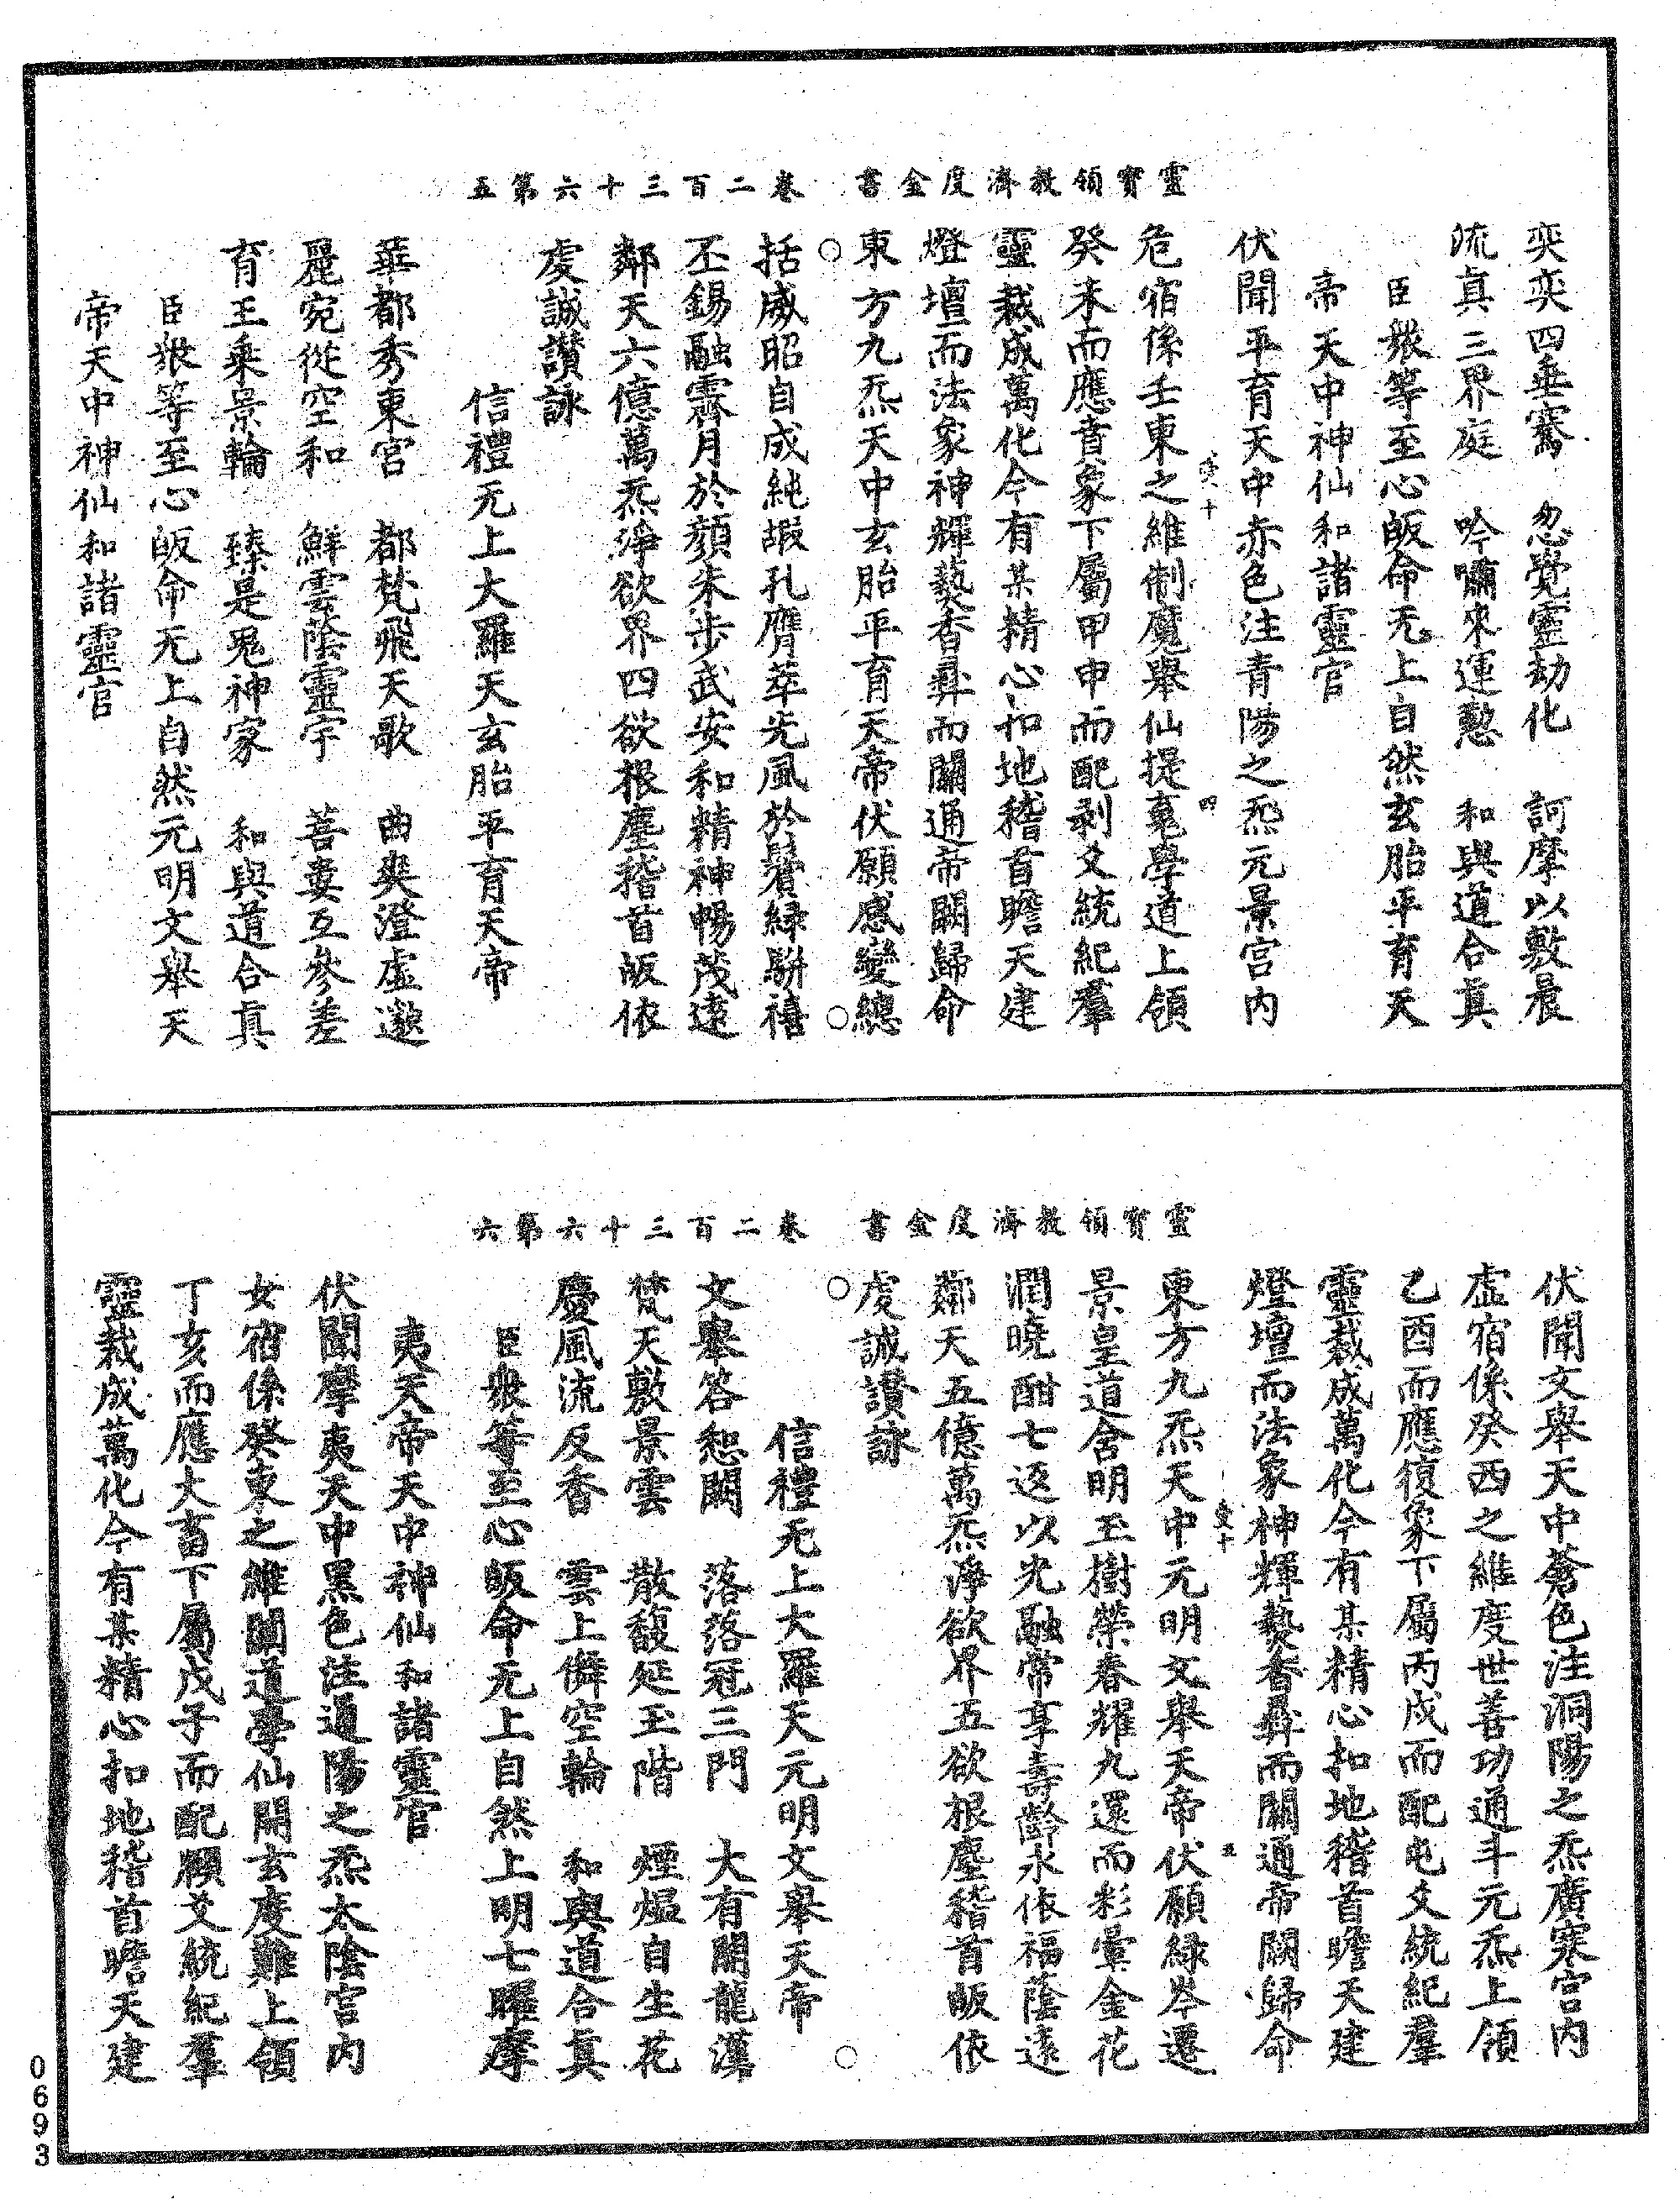 靈寶領教濟度金書　卷二百三十六第五
奕奕四垂騫　忽覺靈劫化　訶摩以敷晨
流真三界庭　吟嘯來運愆　和與道合真
臣衆等至心皈命无上自然玄胎平育天
帝天中神仙和諸靈官
伏聞平育天中赤色注青陽之炁元景宮內
危宿係壬東之維制魔舉仙提
學道上領
癸未而應賁象下屬甲申而配剥爻統紀羣
靈裁成萬化今有某精心扣地稽首瞻天建
燈壇而法象神輝爇香彝而關通帝闕歸命
東方九炁天中玄胎平育天帝伏願感變總
括威昭自成純嘏孔膺萃光風於鬢綠駢禧
丕錫融霽月於顏朱步武安和精神暢茂遠
鄰天六億萬炁淨欲界四欲根塵稽首皈依
虔誠讃詠
信禮无上大羅天玄胎平育天帝
華都秀東宮　都梵飛天歌　曲爽澄虛邀
麗宛從空和　鮮雲蔭靈宇　菩婁互參差
育王乘景輪　臻是鬼神家　和與道合真
臣衆等至心皈命无上自然元明文舉天
帝天中神仙和諸靈官
靈寶領教濟度金書　卷二百三十六第六
伏聞文舉天中蒼色注洞陽之炁廣寒宮內
虛宿係癸西之維度世善功通斗元炁上領
乙酉而應復象下屬丙戌而配屯爻統紀羣
靈裁成萬化今有某精心扣地稽首瞻天建
燈壇而法象神輝爇香彝而關通帝闕歸命
東方九炁天中元明文舉天帝伏願綠岑遷
景皇道含明玉樹榮春耀九還而彩暈金花
潤曉酣七返以光融常享壽齡永依福蔭遠
鄰天五億萬炁淨欲界五欲根塵稽首皈依
虔誠讃詠
信禮无上大羅天元明文舉天帝
文舉答恕闕　落落冠三門　大有開龍漢
梵天敷景雲　散馥延玉階　煙熅自生花
慶風流反香　雲上僻空輪　和與道合真
臣衆等至心皈命无上自然上明七曜摩
夷天帝天中神仙和諸靈官
伏聞摩夷天中黑色注通陽之炁太陰宮內
女宿係癸東之維開道學仙開玄度難上領
丁亥而應大畜下屬戊子而配頤爻統紀羣
靈裁成萬化今有某精心扣地稽首瞻天建
0693